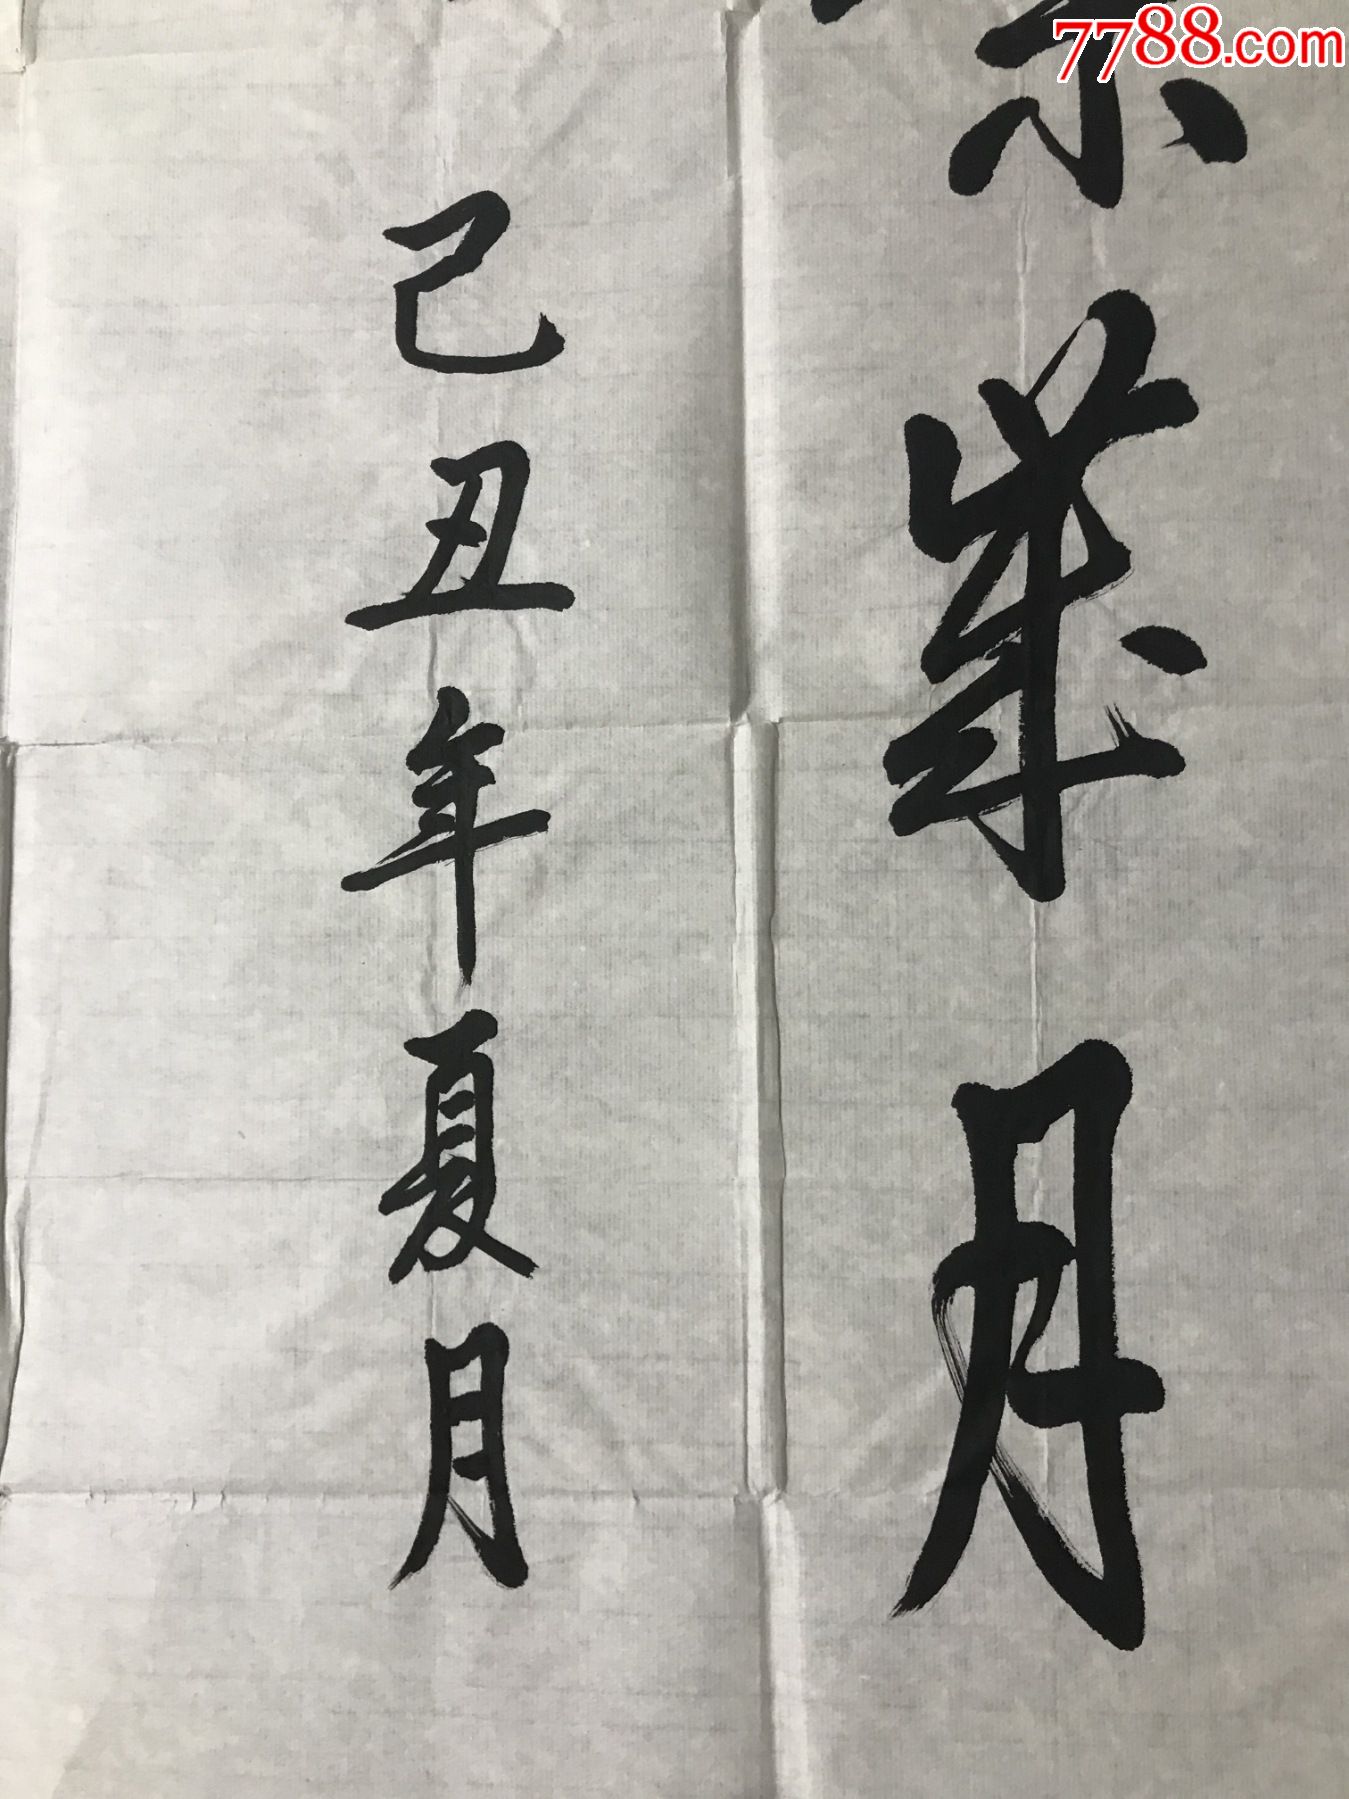 7788.com
歲月
己丑年夏月